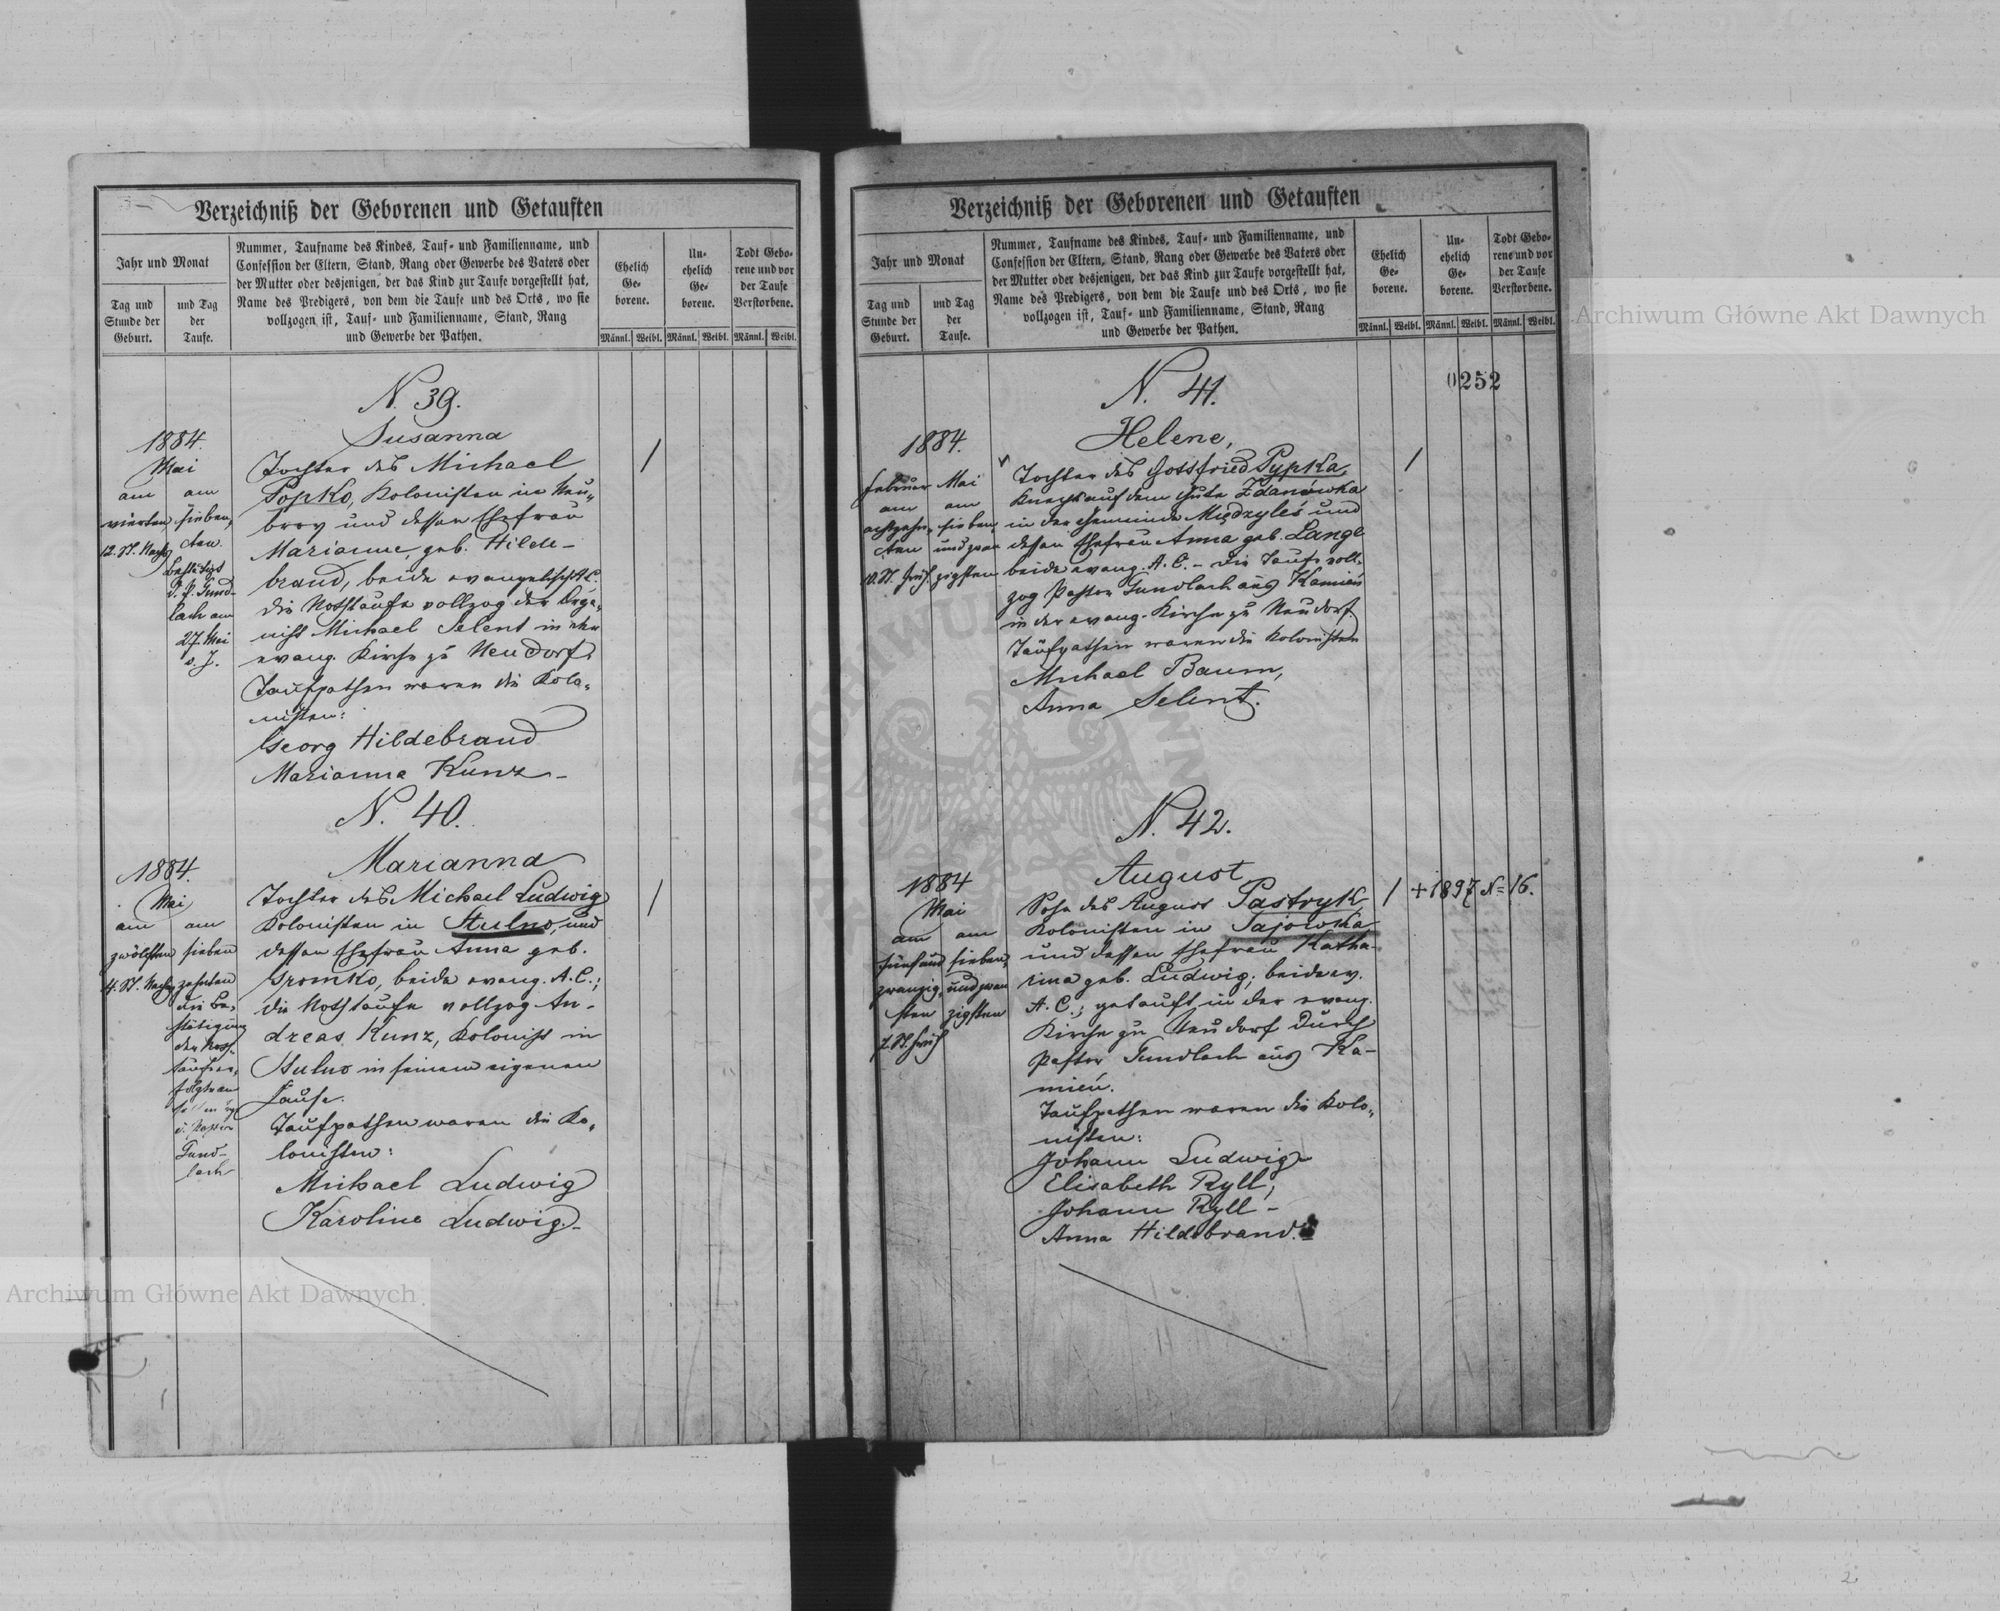 Verzeichniß der Geborenen und Getauften
Jahr und Monat
Tag und
Stunde der
Geburt.
und Tag
der
Taufe.
Nummer, Taufname des Kindes, Tauf- und Familienname, und
Confession der Eltern, Stand, Rang oder Gewerbe des Vaters oder
der Mutter oder desjenigen, der das Kind zur Taufe vorgestellt hat,
Name des Predigers, von dem die Taufe und des Orts, wo sie
vollzogen ist, Tauf- und Familienname, Stand, Rang
und Gewerbe der Pathen.
Ehelich
Ge-
borene.
Un-
ehelich
Ge-
borene.
Todt Gebo-
rene und vor
der Taufe
Verstorbene.
Männl. Weibl. Männl. Weibl. Männl. Weibl.
N. 39.
1884.
Mai
am
vierten
12. St. Nachts
am
sieben,
ten
bestätigt
d. P. Gund-
lach am
27. Mai
d. J.
Susanna
Tochter des Michael
Popko, Kolonisten in Neu-
brow und dessen Ehefrau
Marianne, geb. Hilde-
brand, beide evangelisch A. C.
die Nothtaufe vollzog der Orga-
nist Michael Selent in der
evang. Kirche zu Neudorf.
Taufpathen waren die Kolo-
nisten:
Georg Hildebrand
Marianna Kunz -
N. 40.
1884.
Mai
am
zwölften
4. St. Nachm
am
sieben
zehnten
die Be-
stätigung
der Noth-
taufe er-
folgte am
Gund-
lach
Marianna
Tochter des Michael Ludwig
Kolonisten in Stulno, und
dessen Ehefrau Anna geb.
Gromko, beide evang. A. C.;
die Nothtaufe vollzog An-
dreas Kunz, Kolonist in
Stulno in seinem eigenen
Hause.
Taufpathen waren die Ko-
lonisten:
Michael Ludwig
Karoline Ludwig. -
Verzeichniß der Geborenen und Getauften
Jahr und Monat
Tag und
Stunde der
Geburt.
und Tag
der
Taufe.
Nummer, Taufname des Kindes, Tauf- und Familienname, und
Confession der Eltern, Stand, Rang oder Gewerbe des Vaters oder
der Mutter oder desjenigen, der das Kind zur Taufe vorgestellt hat,
Name des Predigers, von dem die Taufe und des Orts, wo sie
vollzogen ist, Tauf- und Familienname, Stand, Rang
und Gewerbe der Pathen.
Ehelich
Ge-
borene.
Un-
ehelich
Ge-
borene.
Todt Gebo-
rene und vor
der Taufe
Verstorbene.
Männl. Weibl. Männl. Weibl. Männl. Weibl.
0252
N. 41.
1884.
Februar
am
achtzehn-
ten
10. St. früh
Mai
am
sieben
und zwan
zigsten
Helene,
Tochter des Gottfried Pypka,
Knecht auf dem Gute Zdanówka
in der Gemeinde Międzyleś und
dessen Ehefrau Anna geb. Lange
beide evang. A. C. - Die Taufe voll-
zog Pastor Gundlach aus Kamień
in der evang. Kirche zu Neudorf.
Taufpathen waren die Kolonisten
Michael Baum,
Anna Selent.
N. 42.
1884
Mai
am
fünfund
zwanzig-
sten
7. St. früh
am
sieben,
und zwan
zigsten
August
Sohn des August Pastryk
Kolonisten in Sajowka
und dessen Ehefrau Katha-
rina geb. Ludwig; beide ev.
A. C.; getauft in der evang.
Kirche zu Neudorf durch
Pastor Gundlach aus Ka-
mień.
Taufpathen waren die Kolo-
nisten:
Johann Ludwig
Elisabeth Ryll,
Johann Ryll -
Anna Hildebrand.
+ 1897 N= 16.
Archiwum Główne Akt Dawnych
Archiwum Główne Akt Dawnych